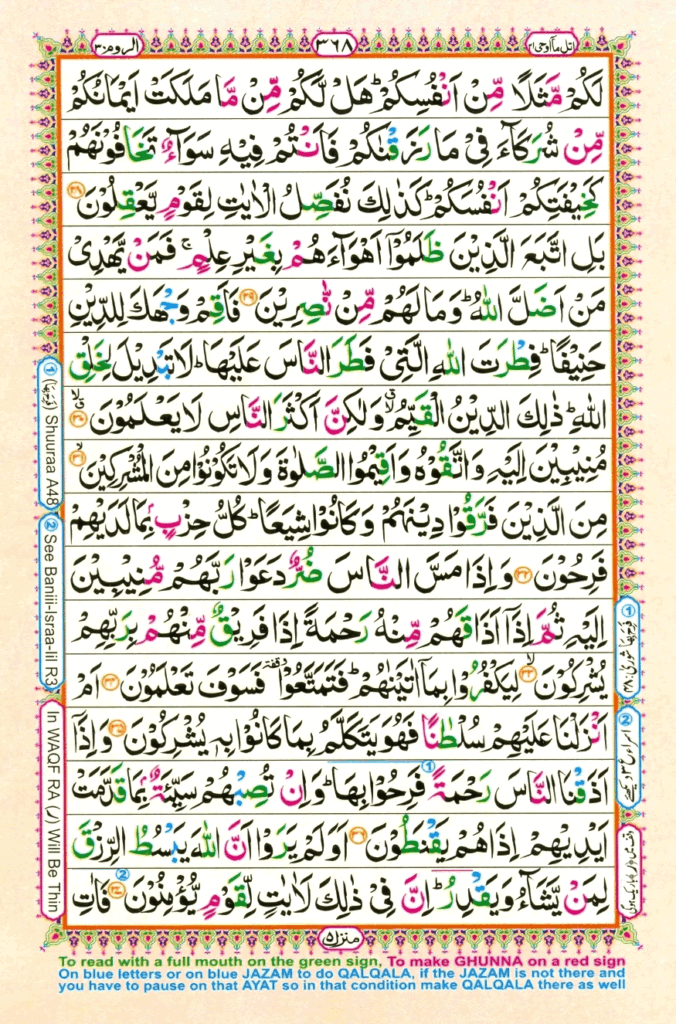 اتل مآاوحی ۲۱
۳۶۸
الروم ۳۰
لَكُمْ مَّثَلًا مِّنْ اَنْفُسِكُمْ ؕ هَلْ لَّكُمْ مِّنْ مَّا مَلَكَتْ اَيْمَانُكُمْ
مِّنْ شُرَكَآءَ فِیْ مَا رَزَقْنٰكُمْ فَاَنْتُمْ فِيْهِ سَوَآءٌ تَخَافُوْنَهُمْ
كَخِيْفَتِكُمْ اَنْفُسَكُمْ ؕ كَذٰلِكَ نُفَصِّلُ الْاٰيٰتِ لِقَوْمٍ يَّعْقِلُوْنَ ۲۸
بَلِ اتَّبَعَ الَّذِيْنَ ظَلَمُوْۤا اَهْوَآءَهُمْ بِغَيْرِ عِلْمٍ ۚ فَمَنْ يَّهْدِیْ
مَنْ اَضَلَّ اللّٰهُ ؕ وَمَا لَهُمْ مِّنْ نّٰصِرِيْنَ ۲۹ فَاَقِمْ وَجْهَكَ لِلدِّيْنِ
حَنِيْفًا ؕ فِطْرَتَ اللّٰهِ الَّتِیْ فَطَرَ النَّاسَ عَلَيْهَا ؕ لَا تَبْدِيْلَ لِخَلْقِ
اللّٰهِ ؕ ذٰلِكَ الدِّيْنُ الْقَيِّمُ ۙ وَلٰكِنَّ اَكْثَرَ النَّاسِ لَا يَعْلَمُوْنَ ۳۰
مُنِيْبِيْنَ اِلَيْهِ وَاتَّقُوْهُ وَاَقِيْمُوا الصَّلٰوةَ وَلَا تَكُوْنُوْا مِنَ الْمُشْرِكِيْنَ ۳۱
مِنَ الَّذِيْنَ فَرَّقُوْا دِيْنَهُمْ وَكَانُوْا شِيَعًا ؕ كُلُّ حِزْبٍۭ بِمَا لَدَيْهِمْ
فَرِحُوْنَ ۳۲ وَاِذَا مَسَّ النَّاسَ ضُرٌّ دَعَوْا رَبَّهُمْ مُّنِيْبِيْنَ
اِلَيْهِ ثُمَّ اِذَاۤ اَذَاقَهُمْ مِّنْهُ رَحْمَةً اِذَا فَرِيْقٌ مِّنْهُمْ بِرَبِّهِمْ
يُشْرِكُوْنَ ۳۳ لِيَكْفُرُوْا بِمَاۤ اٰتَيْنٰهُمْ ؕ فَتَمَتَّعُوْا ۥ فَسَوْفَ تَعْلَمُوْنَ ۳۴ اَمْ
اَنْزَلْنَا عَلَيْهِمْ سُلْطٰنًا فَهُوَ يَتَكَلَّمُ بِمَا كَانُوْا بِهٖ يُشْرِكُوْنَ ۳۵ وَاِذَاۤ
اَذَقْنَا النَّاسَ رَحْمَةً فَرِحُوْا بِهَا ؕ وَاِنْ تُصِبْهُمْ سَيِّئَةٌۢ بِمَا قَدَّمَتْ
اَيْدِيْهِمْ اِذَا هُمْ يَقْنَطُوْنَ ۳۶ اَوَلَمْ يَرَوْا اَنَّ اللّٰهَ يَبْسُطُ الرِّزْقَ
لِمَنْ يَّشَآءُ وَيَقْدِرُ ؕ اِنَّ فِیْ ذٰلِكَ لَاٰيٰتٍ لِّقَوْمٍ يُّؤْمِنُوْنَ ۳۷ فَاٰتِ
منزل ۵
① Shuuraa A48
② See Baniii-Israa-Iil R3
In WAQF RA (ر) Will Be Thin
To read with a full mouth on the green sign, To make GHUNNA on a red sign
On blue letters or on blue JAZAM to do QALQALA, if the JAZAM is not there and
you have to pause on that AYAT so in that condition make QALQALA there as well